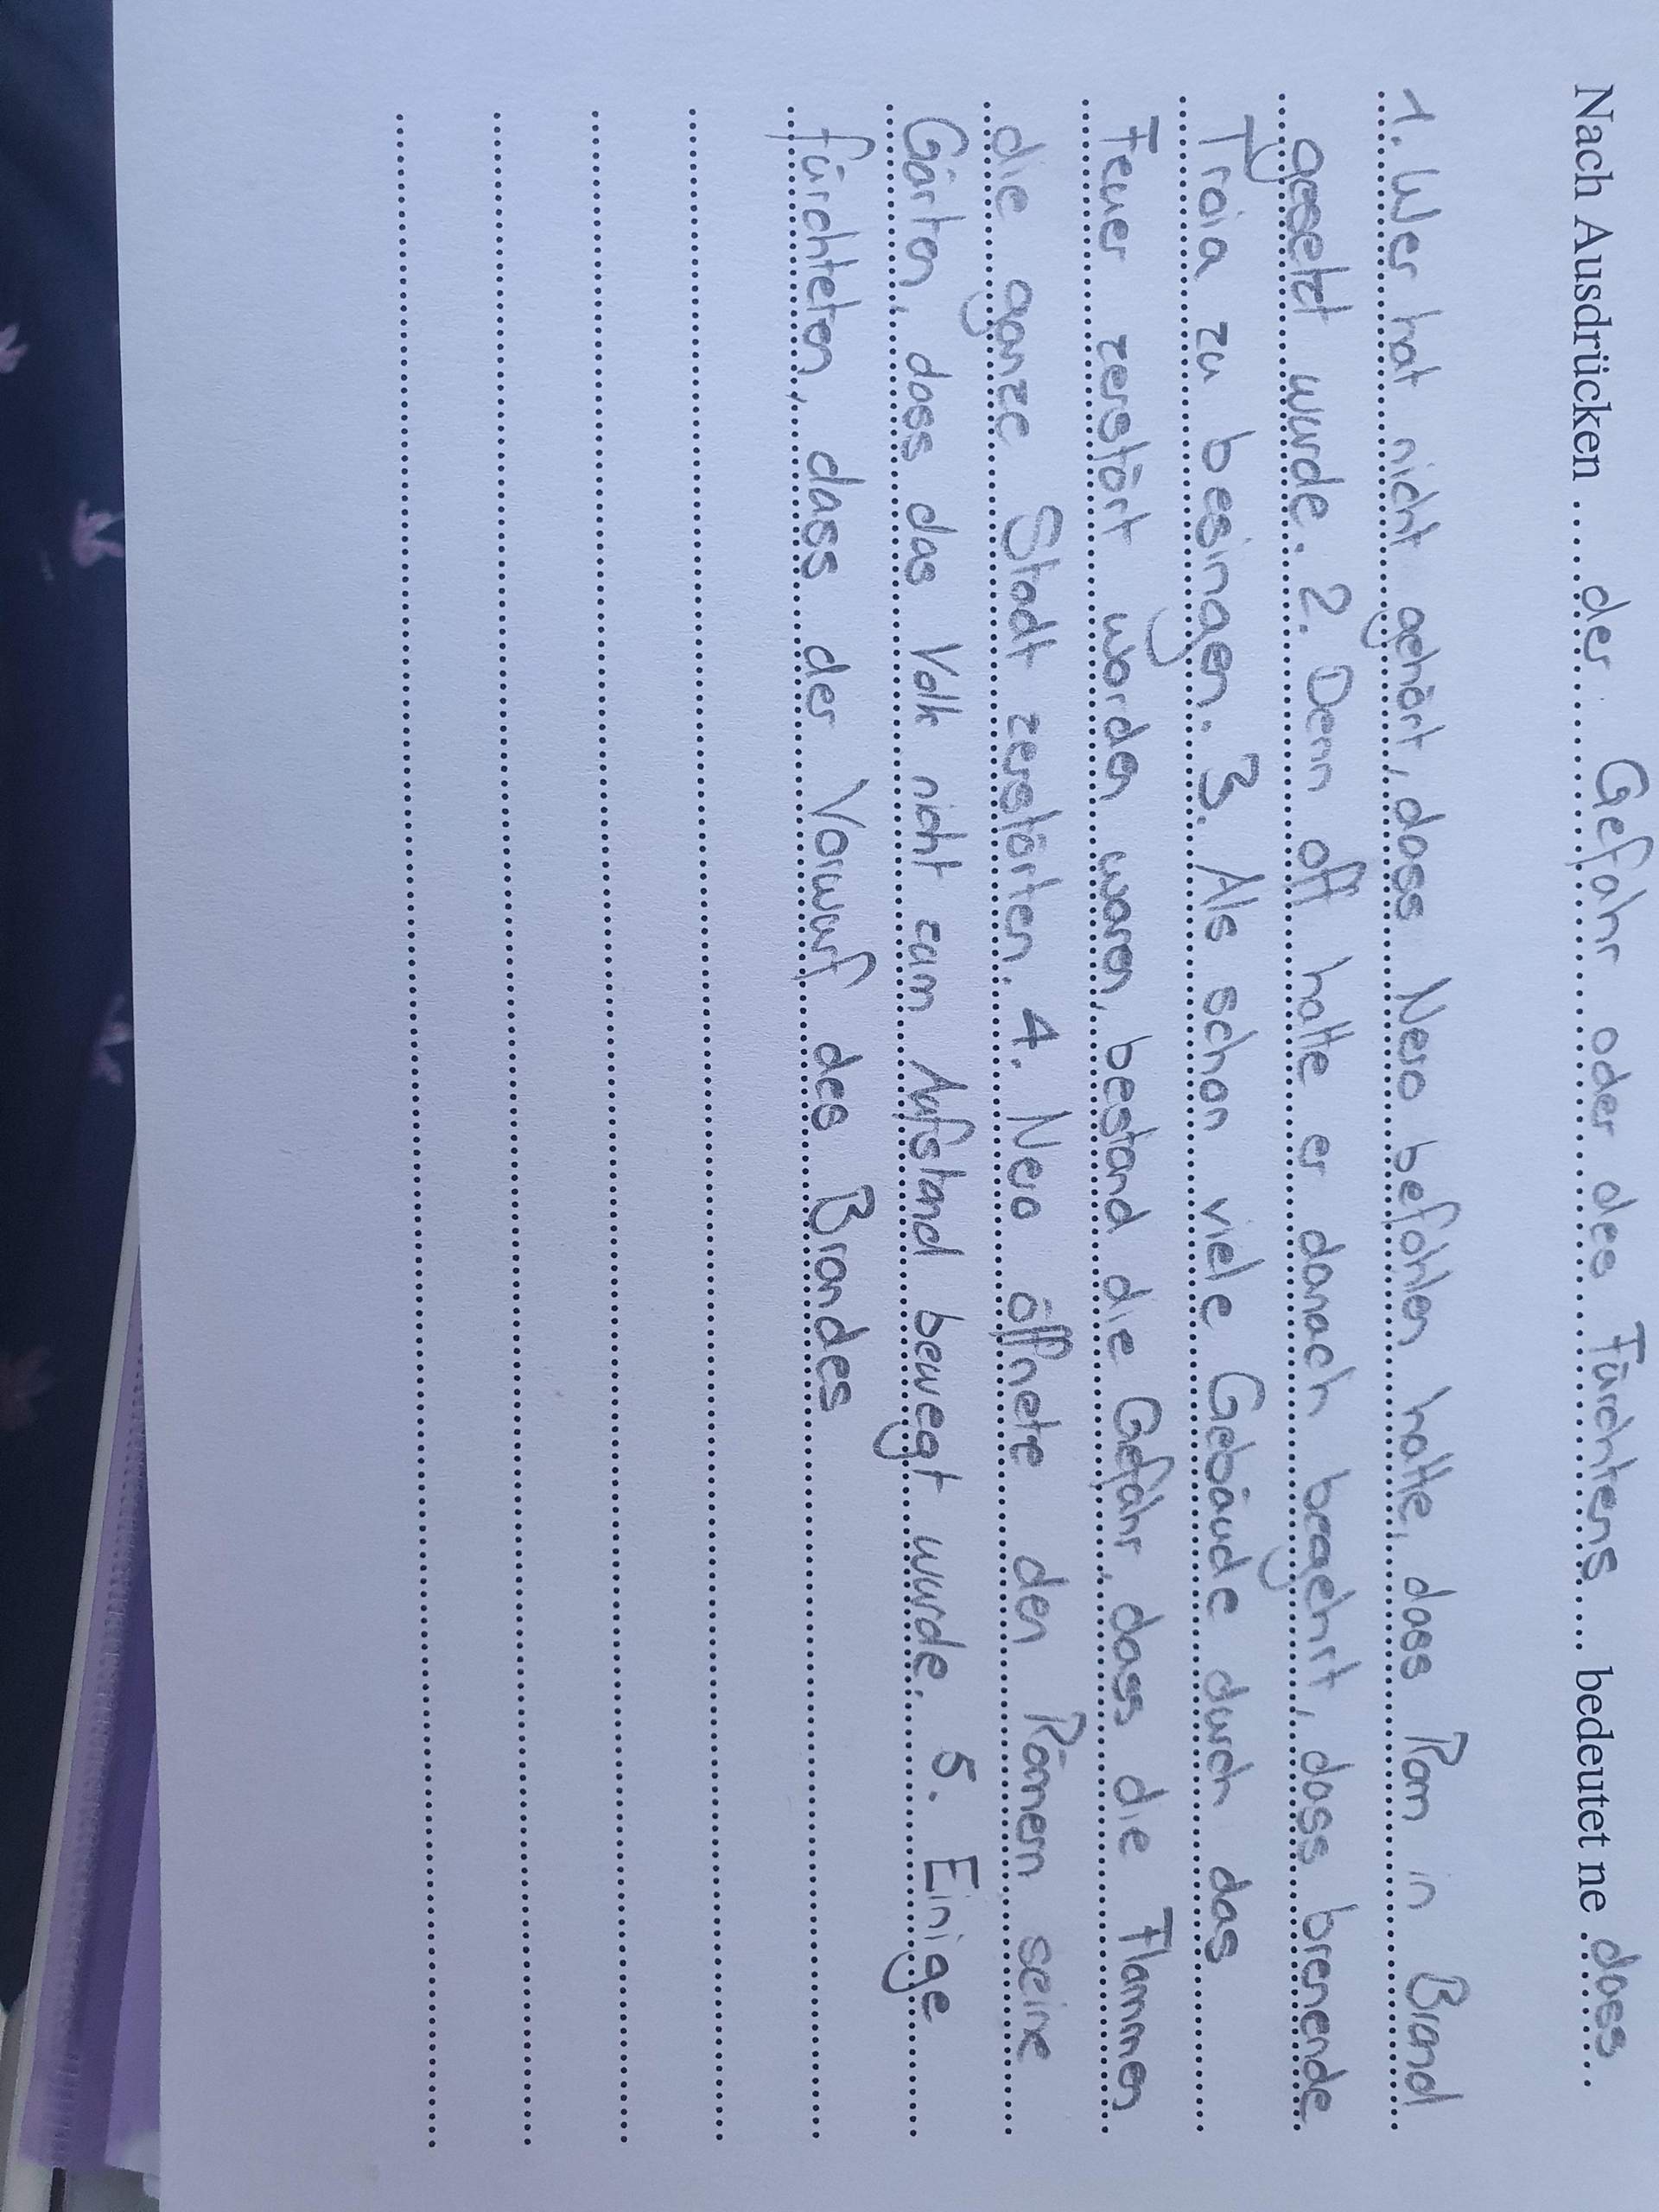 Nach Ausdrücken ....der.... Gefahr oder des Fürchtens.... bedeutet ne .dass...
1. Wer hat nicht gehört, dass Nero befohlen hatte, dass Rom in Brand
gesetzt wurde. 2. Denn oft hatte er danach begehrt, dass brenende
Troia zu besingen. 3. Als schon viele Gebäude durch das
Feuer zerstört worden waren, bestand die Gefahr, dass die Flammen
die ganze Stadt zerstörten. 4. Nero öffnete den Römern seine
Gärten, dass das Volk nicht zum Aufstand bewegt wurde. 5. Einige
fürchteten, dass der Vorwurf des Brandes